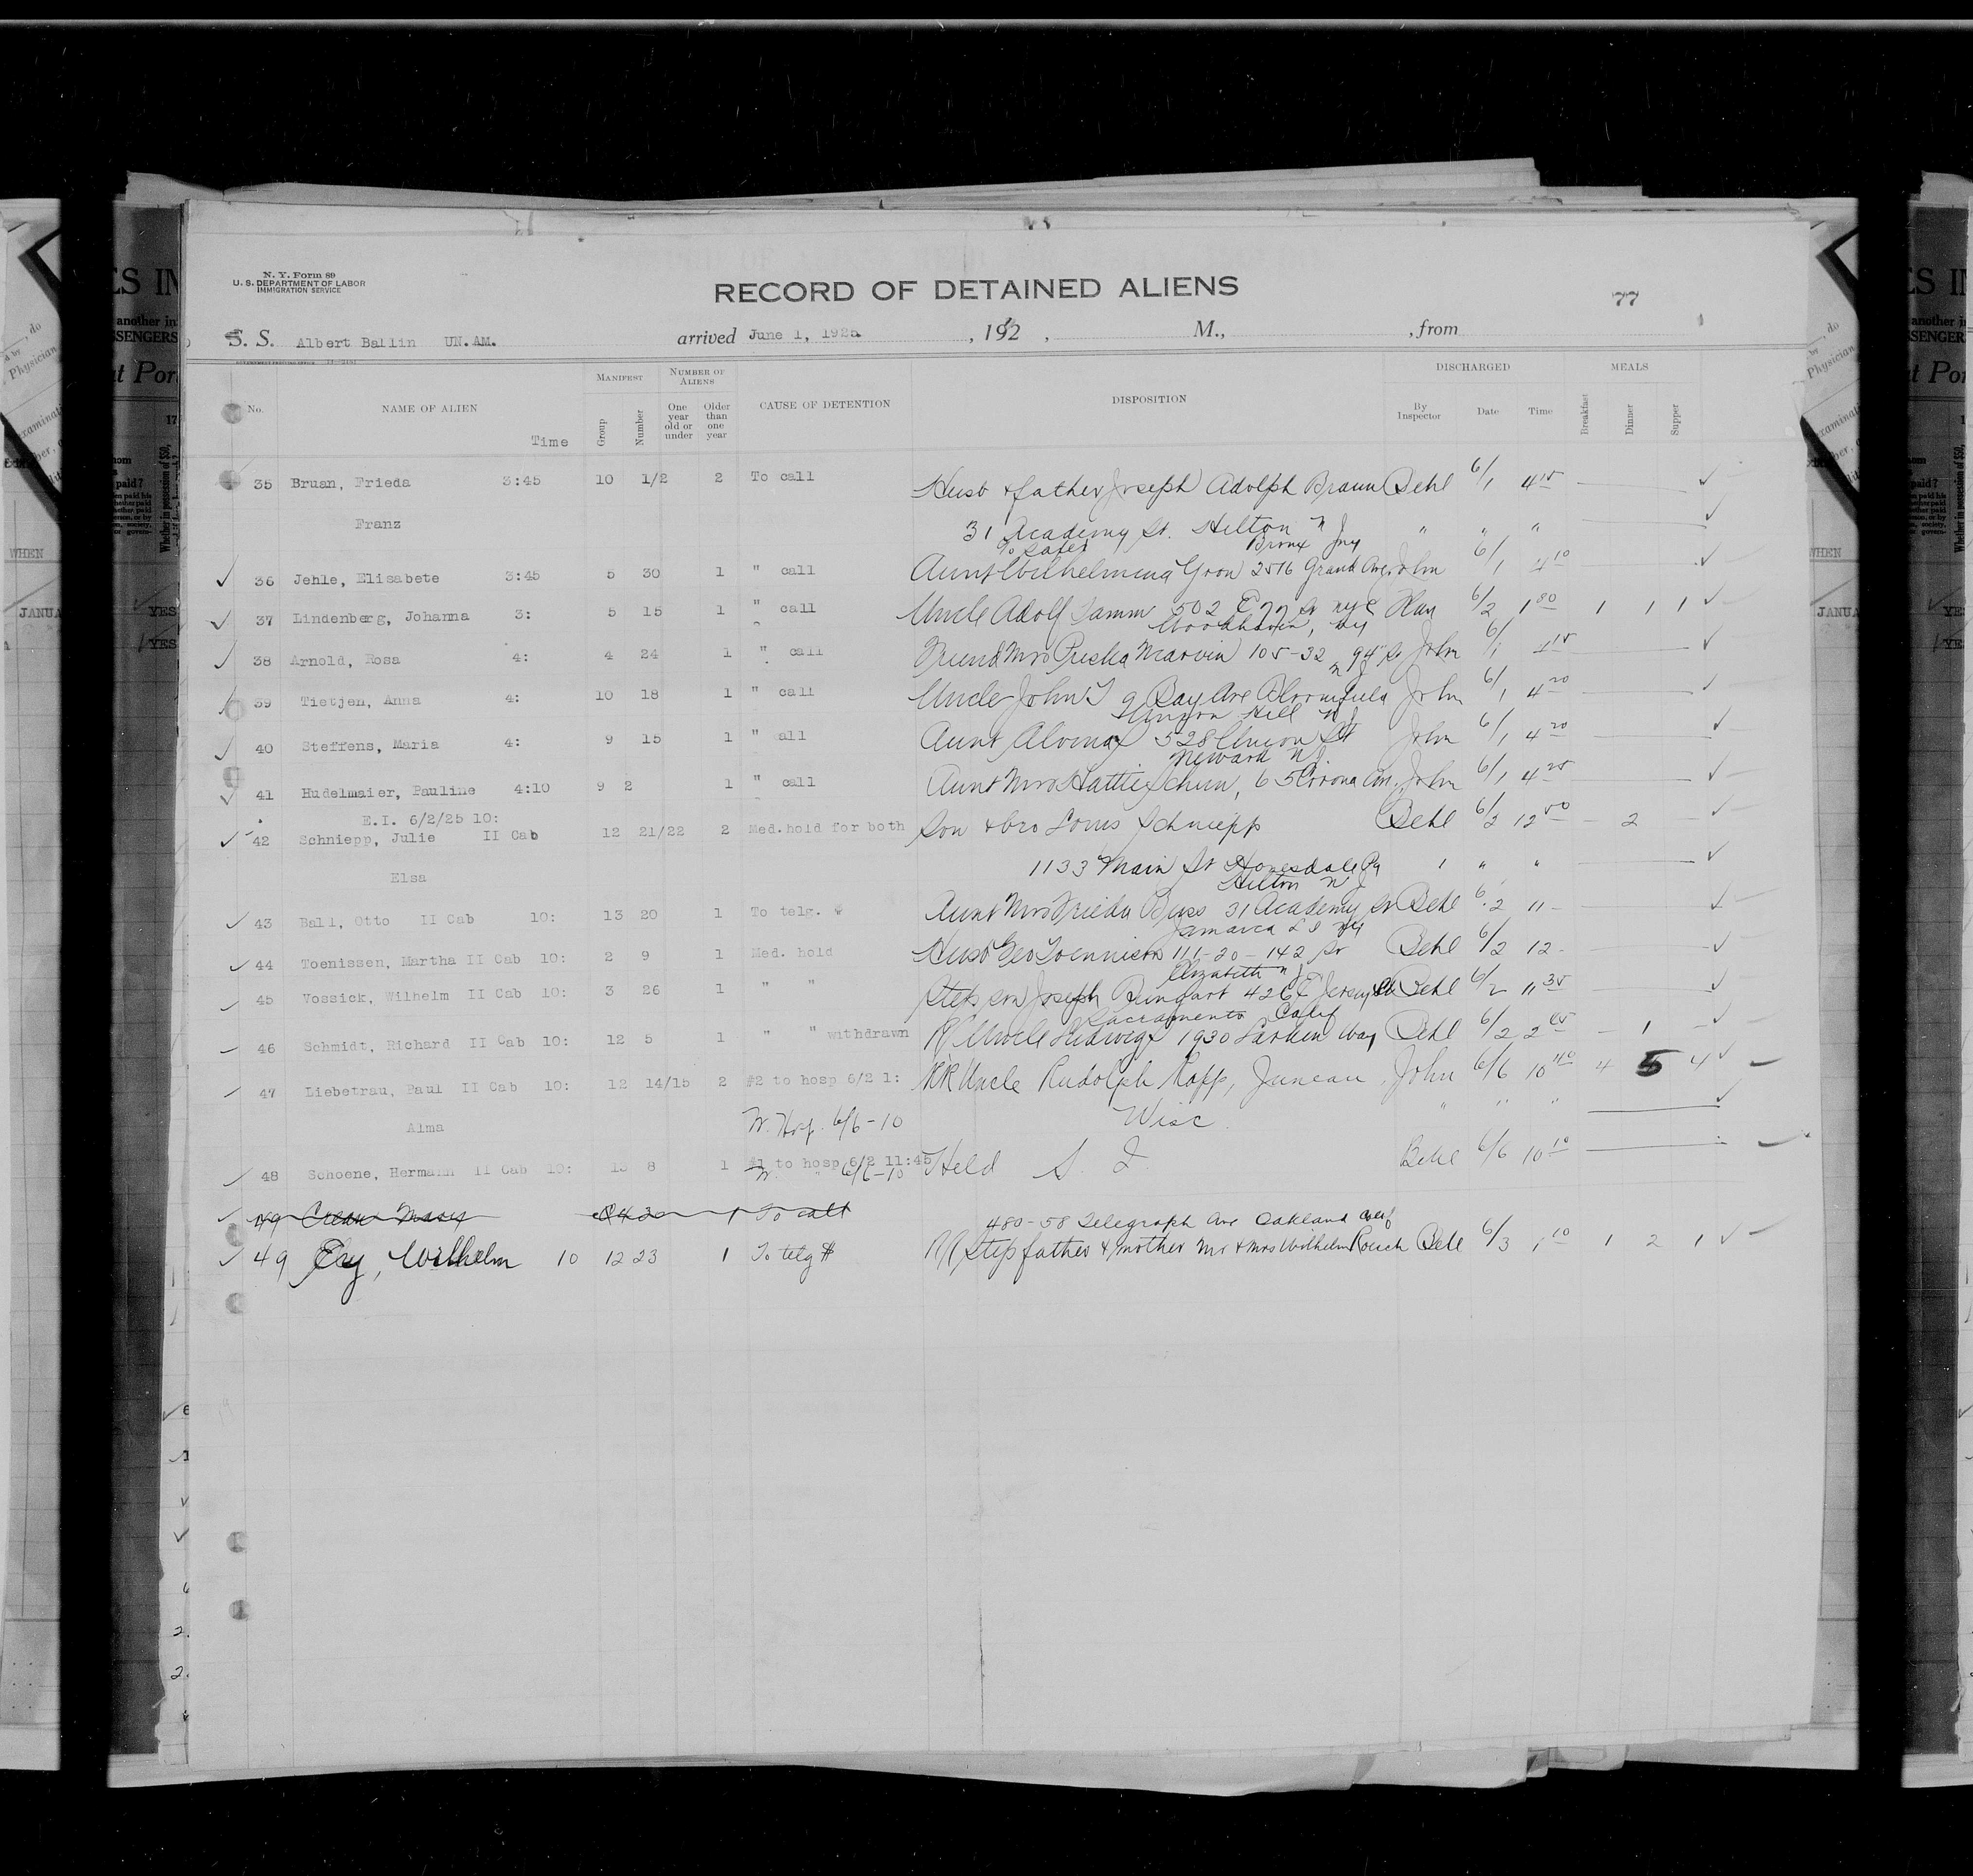 N. Y. Form 89
U. S. DEPARTMENT OF LABOR
IMMIGRATION SERVICE
RECORD OF DETAINED ALIENS
77
S. S. Albert Ballin UN. AM. arrived June 1, 1925 , 192 , M., , from
No. NAME OF ALIEN Time MANIFEST Group Number NUMBER OF ALIENS One year old or under Older than one year CAUSE OF DETENTION DISPOSITION DISCHARGED By Inspector Date Time MEALS Breakfast Dinner Supper
35 Bruan, Frieda 3:45 10 1/2 2 To call Husb & father Joseph Adolph Braun Behl 6/1 4 15
Franz 31 Academy St. Hilton N J " " "
Bronx NY
36 Jehle, Elisabete 3:45 5 30 1 " call Aunt Wilhelmina 2516 Grand Ave John 6/1 4 10
37 Lindenberg, Johanna 3: 5 15 1 " call Uncle Adolf 502 E 77 St NYC 6/2 1 1 1
Woodhaven, NY
38 Arnold, Rosa 4: 4 24 1 " call Friend Mrs Marvin 105-32 94" St John 6/1 4 15
N J
39 Tietjen, Anna 4: 10 18 1 " call Uncle John T 9 Bay Ave Bloomfield John 6/1 4 20
Union Hill N J
40 Steffens, Maria 4: 9 15 1 " all Aunt Alvina 528 Union St John 6/1 4 20
Newark N J.
41 Hudelmaier, Pauline 4:10 9 2 1 " call Aunt Mrs Hattie Schum, 65 Corona Av. John 6/1 4 25
E.I. 6/2/25 10:
42 Schniepp, Julie II Cab 12 21/22 2 Med. hold for both Son & bro Louis Schniepp Behl 6/2 12 50 2
Elsa 1133 Main St Honesdale Pa " " "
Hilton N J
43 Ball, Otto II Cab 10: 13 20 1 To telg. Aunt Mrs Frieda Buss 31 Academy St Behl 6/2 11 -
Jamaica L I NY
44 Toenissen, Martha II Cab 10: 2 9 1 Med. hold Husb Geo Toennissen 111-20-142 St Behl 6/2 12 -
Elizabeth N J
45 Vossick, Wilhelm II Cab 10: 3 26 1 " " Step son Joseph 426 E Jersey St Behl 6/2 11 35
Sacramento Calif
46 Schmidt, Richard II Cab 10: 12 5 1 " " withdrawn Uncle Ludwig 1930 Larkin Way Behl 6/2 1
47 Liebetrau, Paul II Cab 10: 12 14/15 2 #2 to hosp 6/2 1: Uncle Rudolph Kopp, Juneau John 6/6 10 40 4 5 4
Alma Hosp. 6/6-10 Wisc " " "
48 Schoene, Hermann II Cab 10: 13 8 1 #1 to hosp 6/2 11:45 Held S. I. Behl 6/6 10 10
" 6/6-10
49 1 To call
480-58 Telegraph Ave Oakland Calif
49 Ey, Wilhelm 10 12 23 1 To telg $ Step father & mother Mr & Mrs Wilhelm Behl 6/3 1 10 1 2 1